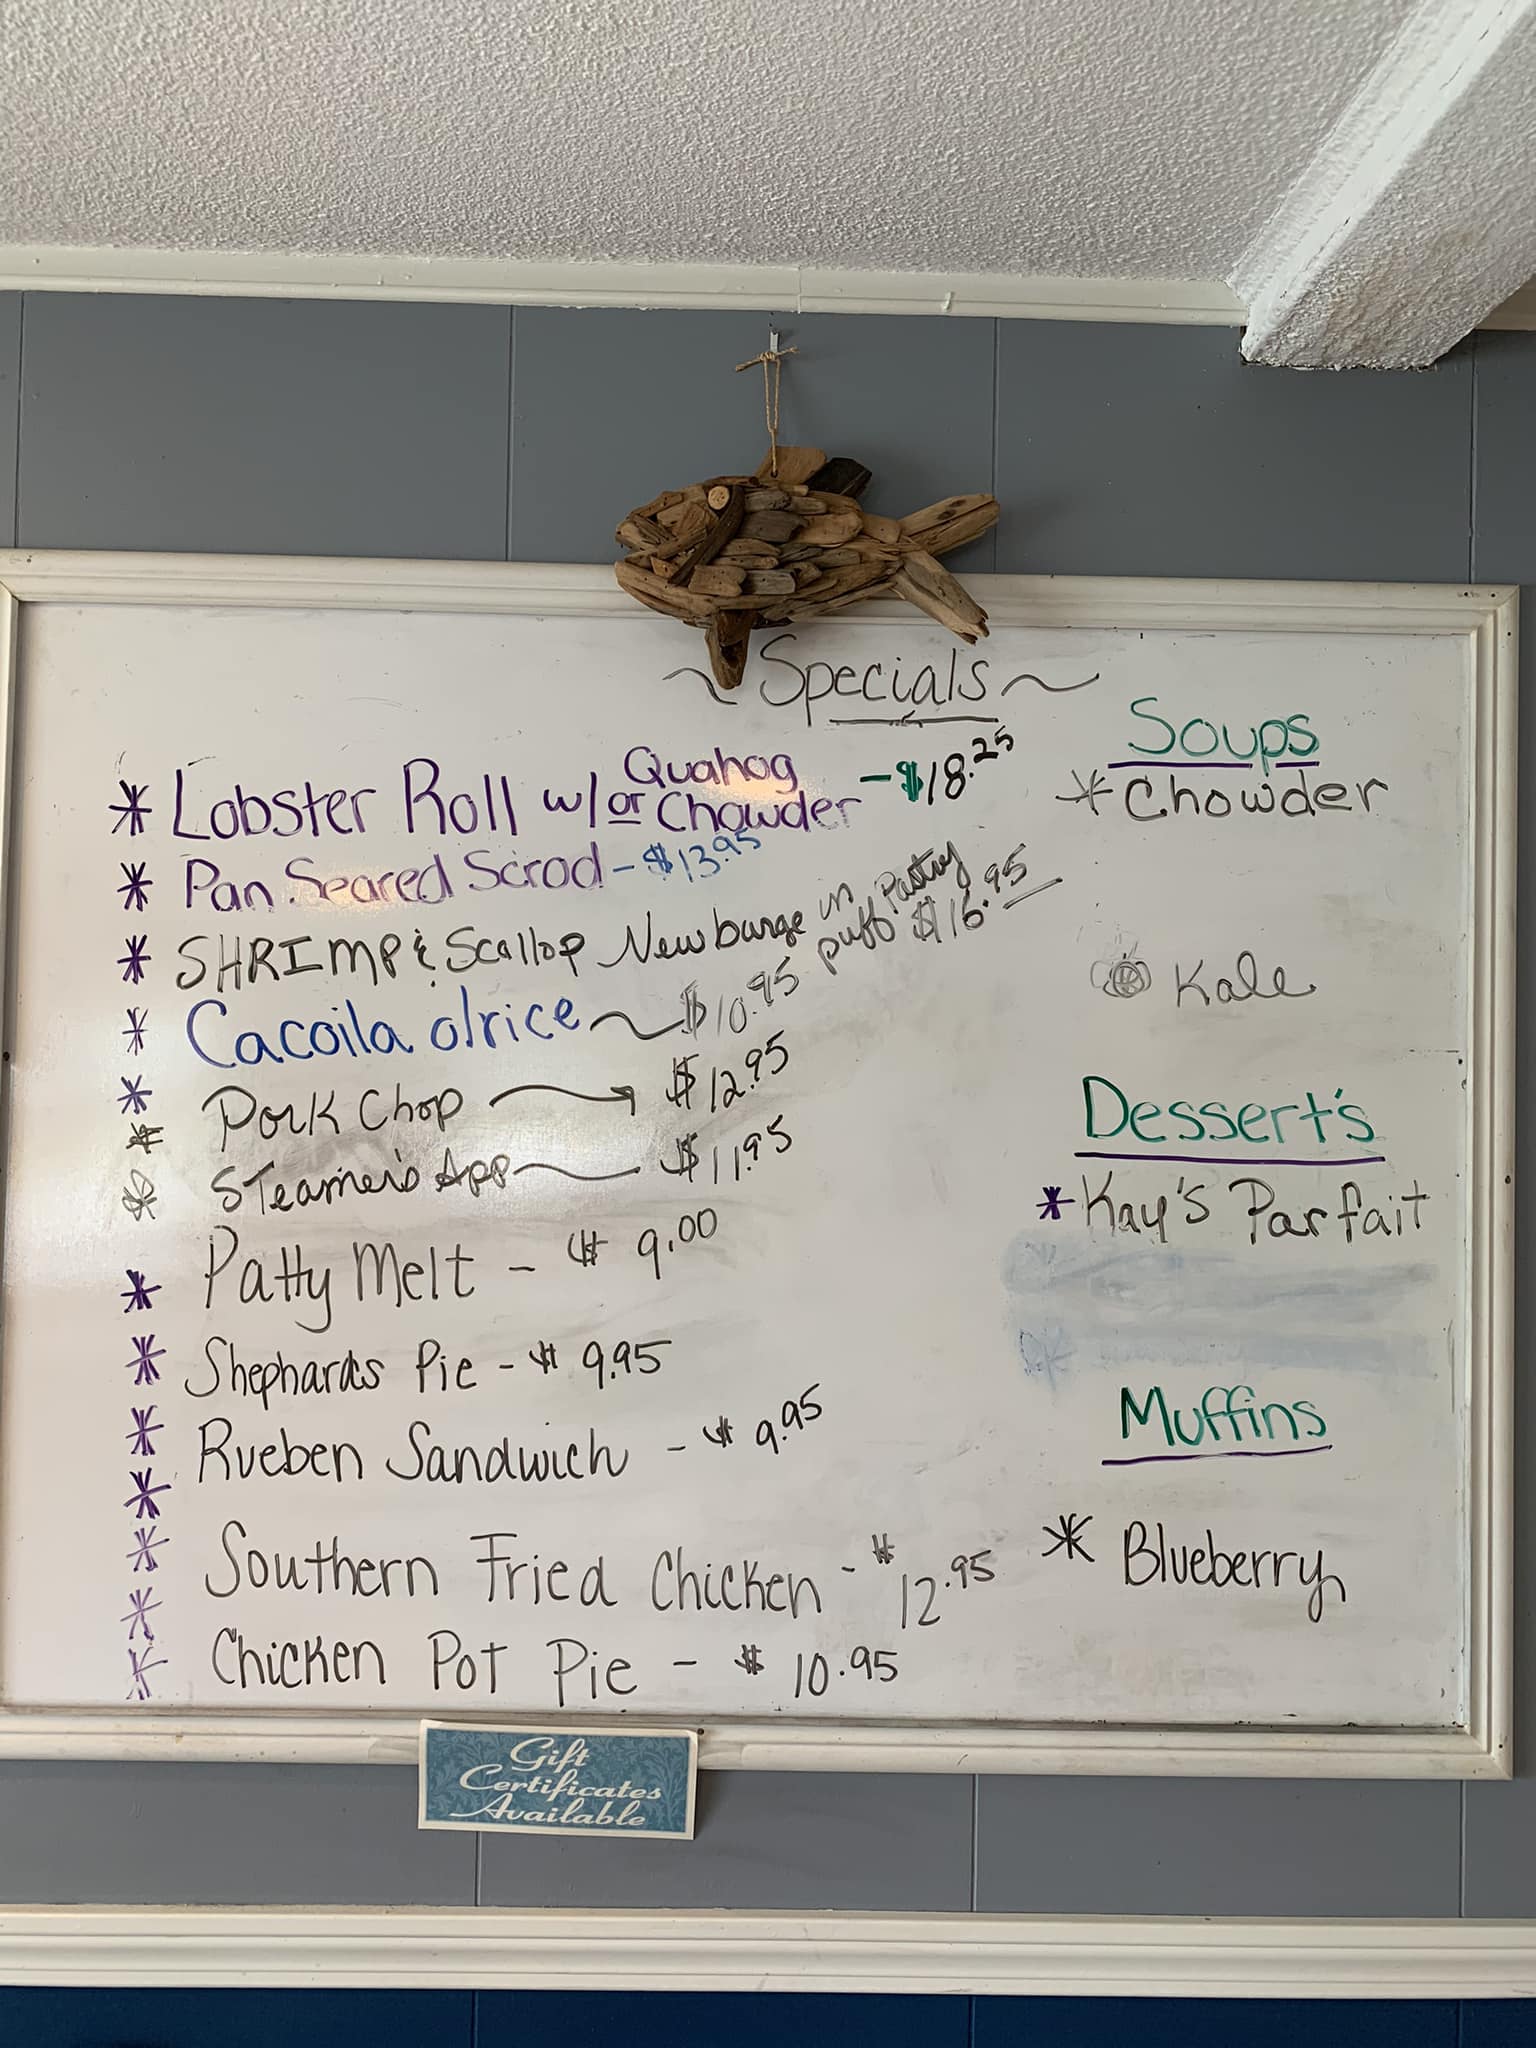 ~ Specials ~
* Lobster Roll w/ Quahog or Chowder - $18.25
* Pan Seared Scrod - $13.95
* SHRIMP & Scallop Newburge in puff Pastry $16.95
* Cacoila o/rice ~ $10.95
* Pork Chop → $12.95
* STeamers App — $11.95
Patty Melt - $ 9.00
* Shephards Pie - $ 9.95
* Rueben Sandwich - $ 9.95
* Southern Fried Chicken - $ 12.95
* Chicken Pot Pie - $ 10.95
Soups
* Chowder
Kale
Dessert's
* Kay's Parfait
Muffins
* Blueberry
Gift
Certificates
Available